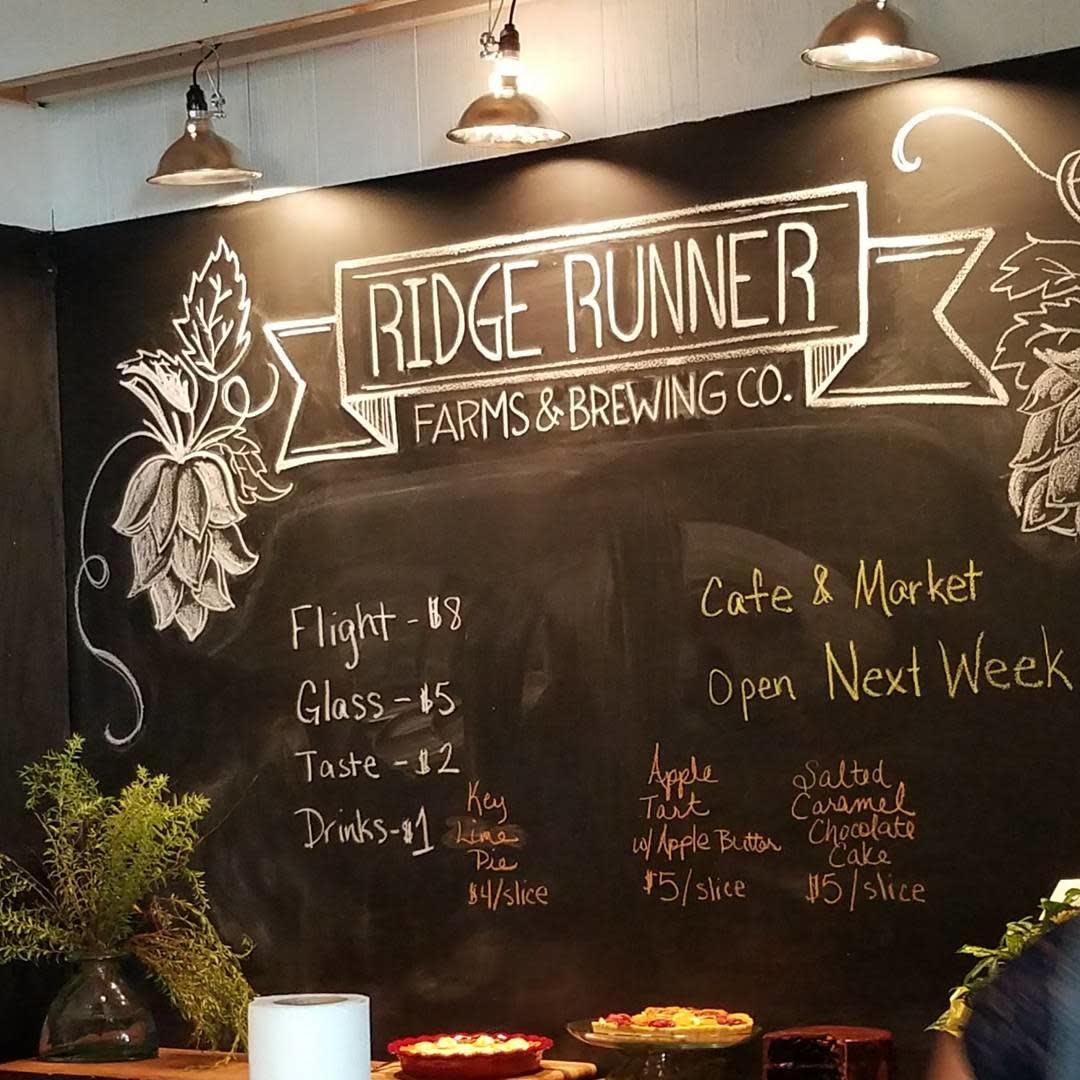 RIDGE RUNNER
FARMS & BREWING CO.
Flight - $8
Glass - $5
Taste - $2
Drinks - $1
Cafe & Market
Open Next Week
Key
Lime
Pie
$4/slice
Apple
Tart
w/ Apple Butter
$5/slice
Salted
Caramel
Chocolate
Cake
$5/slice